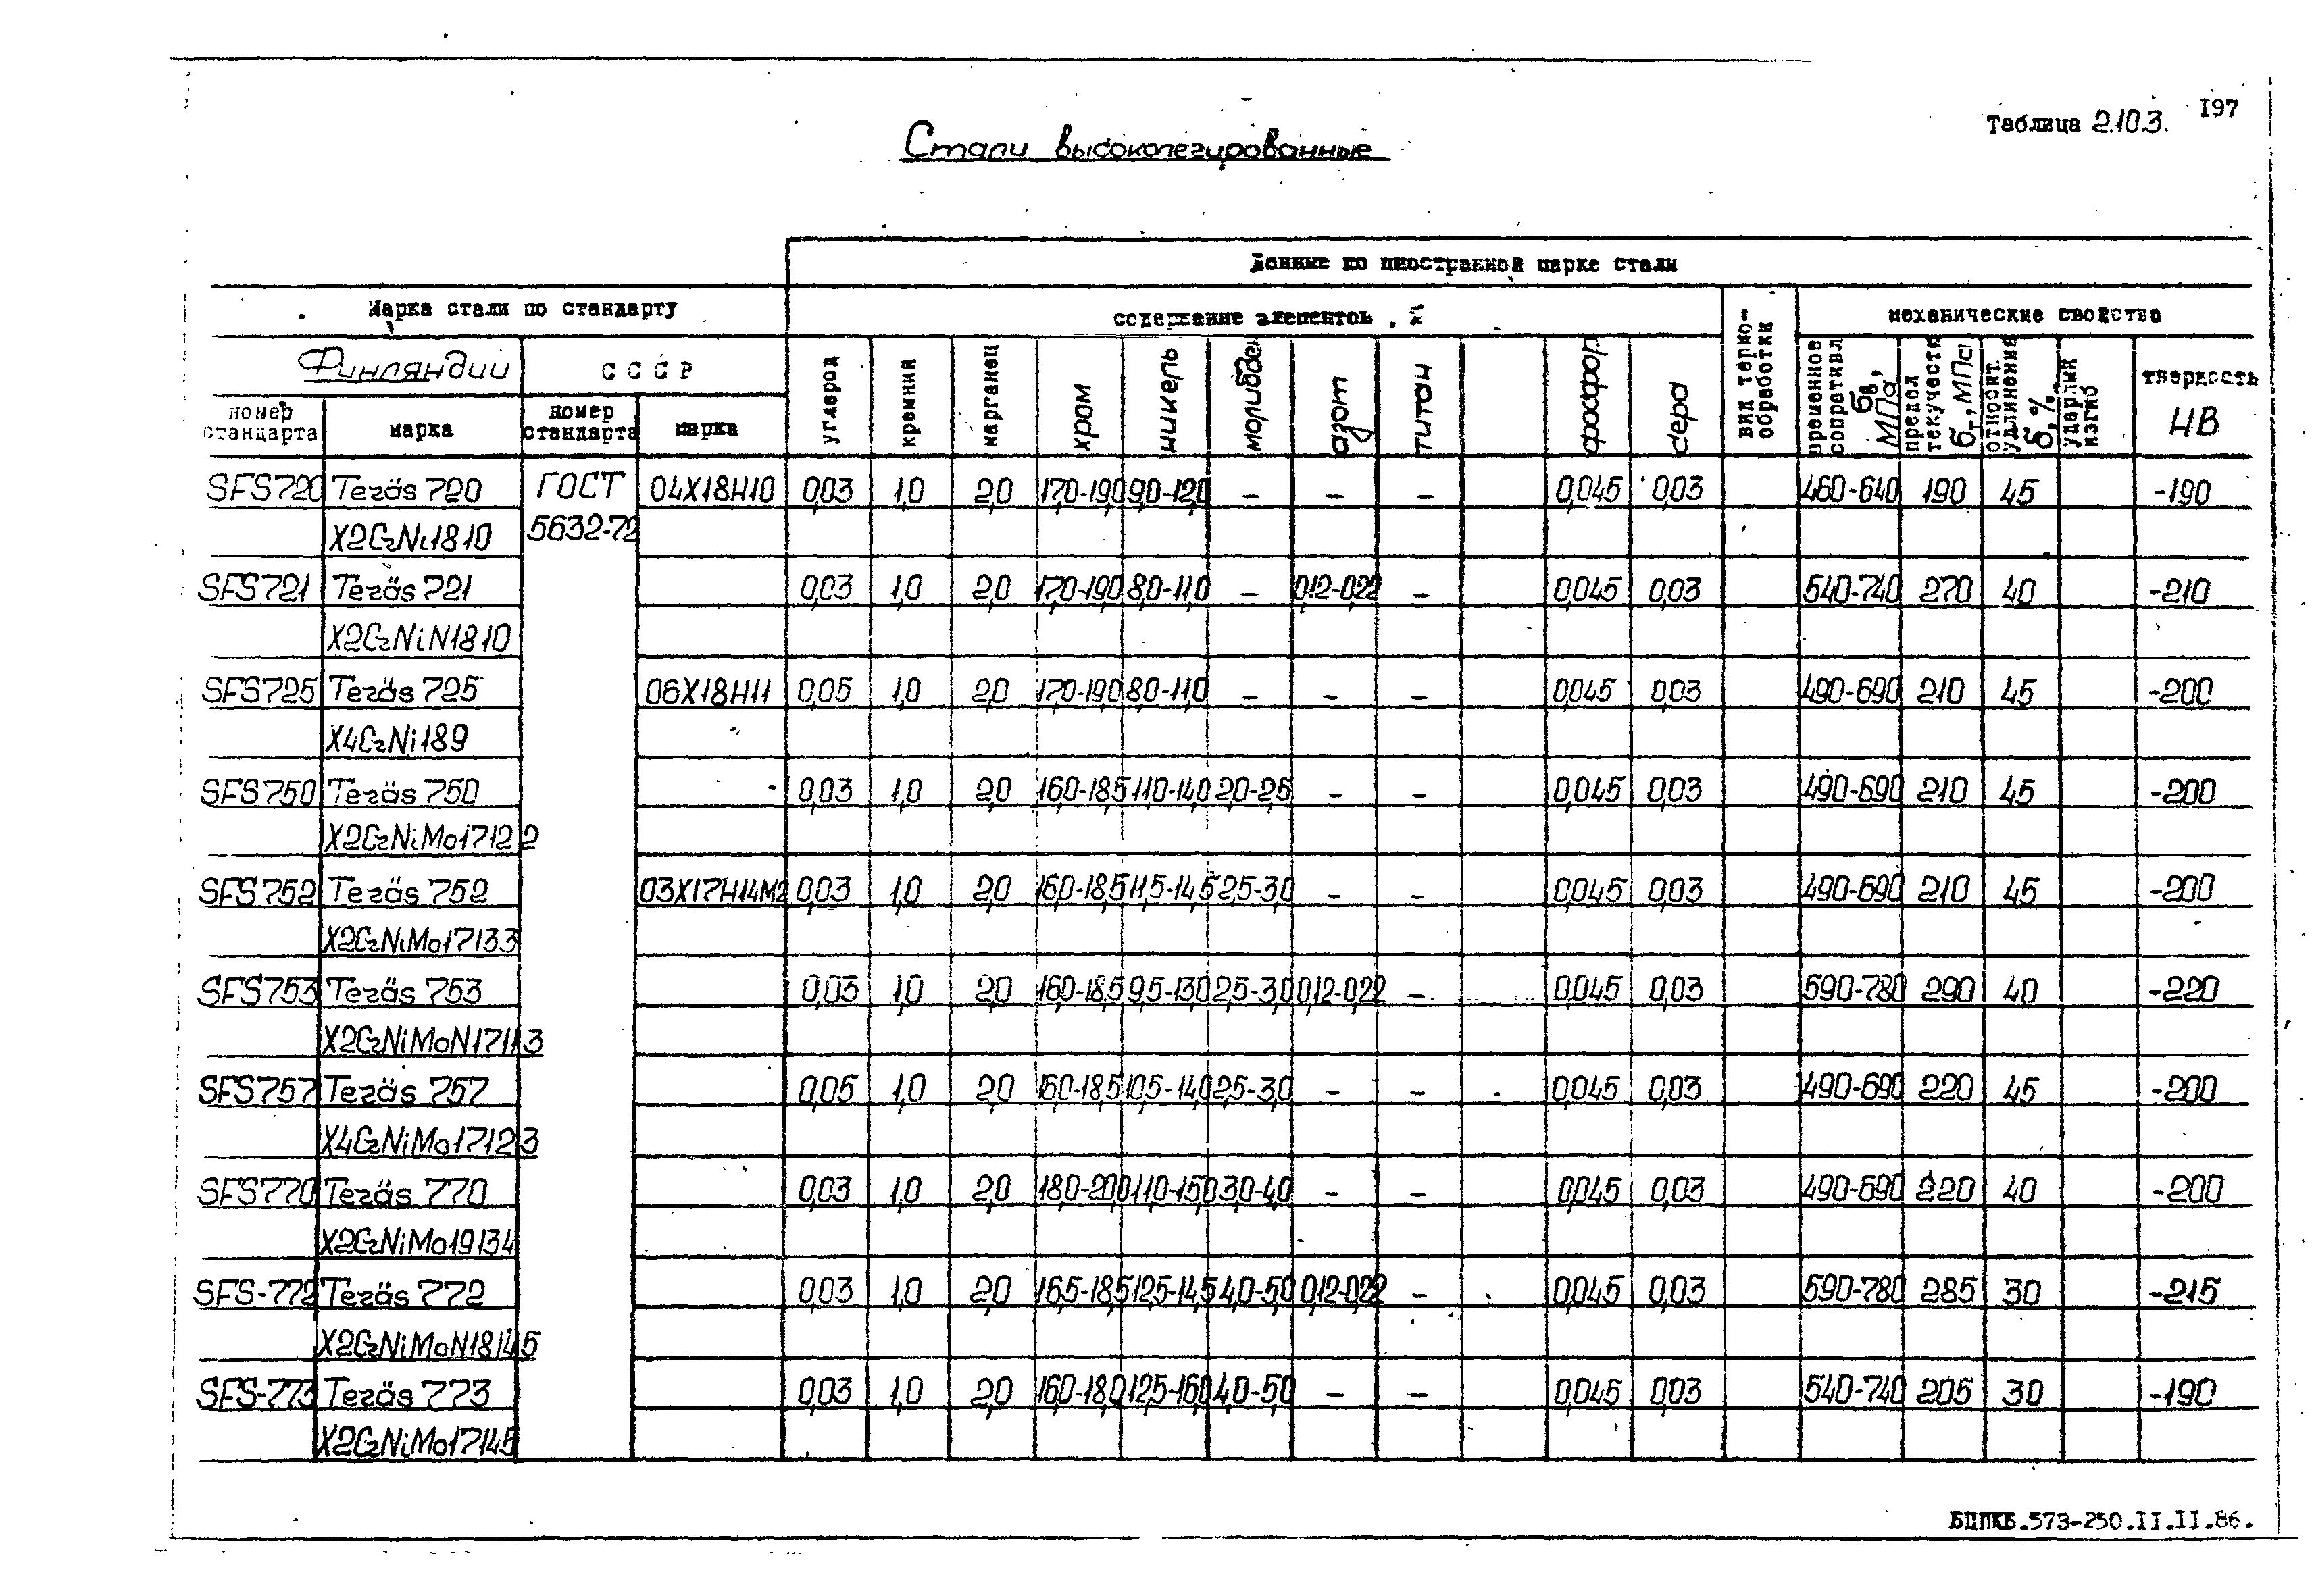 I97
Таблица 2.10.3.
Стали высоколегированные
Данные по иностранной марке стали
Марка стали по стандарту
содержание элементов, %
вид термо-обработки
механические свойства
Финляндии
СССР
углерод
кремния
марганец
хром
никель
молибден
азот
титан
фосфор
сера
временное сопративл. бв, МПа
предел текучести бт, МПа
относит. удлинение б, %
ударный изгиб
твердость НВ
номер стандарта
марка
номер стандарта
марка
SFS720 Teräs 720 ГОСТ 04Х18Н10 0,03 1,0 2,0 17,0-19,0 9,0-12,0 – – – 0,045 0,03 460-640 190 45 -190
X2CrNi1810 5632-72
SFS721 Teräs 721 0,03 1,0 2,0 17,0-19,0 8,0-11,0 – 0,12-0,22 – 0,045 0,03 540-740 270 40 -210
X2CrNiN1810
SFS725 Teräs 725 06Х18Н11 0,05 1,0 2,0 17,0-19,0 8,0-11,0 – – – 0,045 0,03 490-690 210 45 -200
X4CrNi189
SFS750 Teräs 750 0,03 1,0 2,0 16,0-18,5 11,0-14,0 2,0-2,5 – – 0,045 0,03 490-690 210 45 -200
X2CrNiMo17122
SFS752 Teräs 752 03Х17Н14М2 0,03 1,0 2,0 16,0-18,5 11,5-14,5 2,5-3,0 – – 0,045 0,03 490-690 210 45 -200
X2CrNiMo17133
SFS753 Teräs 753 0,03 1,0 2,0 16,0-18,5 9,5-13,0 2,5-3,0 0,12-0,22 – 0,045 0,03 590-780 290 40 -220
X2CrNiMoN17113
SFS757 Teräs 757 0,05 1,0 2,0 16,0-18,5 10,5-14,0 2,5-3,0 – – 0,045 0,03 490-690 220 45 -200
X4CrNiMo17123
SFS770 Teräs 770 0,03 1,0 2,0 18,0-20,0 11,0-15,0 3,0-4,0 – – 0,045 0,03 490-690 220 40 -200
X2CrNiMo19134
SFS-772 Teräs 772 0,03 1,0 2,0 16,5-18,5 12,5-14,5 4,0-5,0 0,12-0,22 – 0,045 0,03 590-780 285 30 -215
X2CrNiMoN18145
SFS-773 Teräs 773 0,03 1,0 2,0 16,0-18,0 12,5-16,0 4,0-5,0 – – 0,045 0,03 540-740 205 30 -190
X2CrNiMo17145
БЦПКБ.573-250.II.II.86.